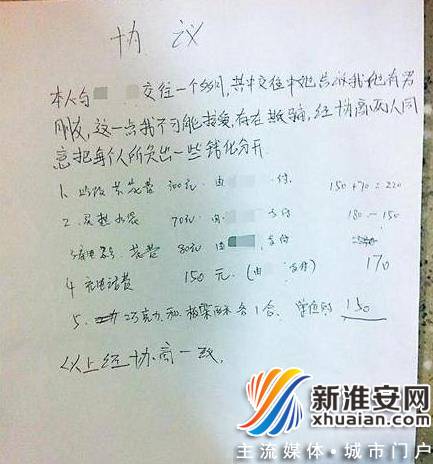 协 议
本人与 交往一个多月,其中交往中她告诉我,他有男
朋友,这一点我不可能接受,存在欺骗,经协商两人同
意把每个人所负出一些钱化分开.
1. 花费 300元. 由 付. 150+70=220
2. 水袋 70元 由 支付 180-150
3. 花费 80元 由 支付
4 充电话费 150元.(由 支付) 170
5. 巧克力 和 各1合. 150
以上经协商一致.
新淮安网
xhuaian.com
主流媒体·城市门户